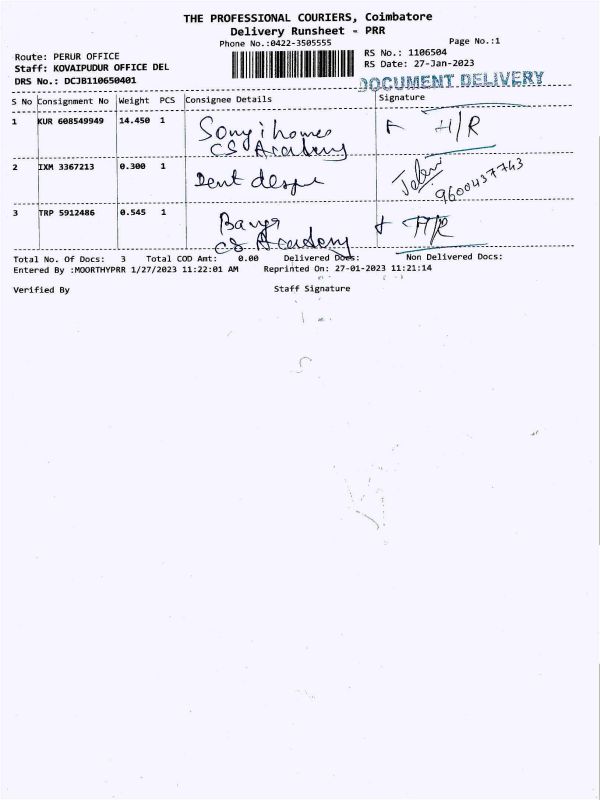 THE PROFESSIONAL COURIERS, Coimbatore
Delivery Runsheet - PRR
Phone No.:0422-3505555
Page No.:1
Route: PERUR OFFICE
RS No.: 1106504
Staff: KOVAIPUDUR OFFICE DEL
RS Date: 27-Jan-2023
DRS No.: DCJB110650401
DOCUMENT DELIVERY
S No Consignment No Weight PCS Consignee Details Signature
1 KUR 608549949 14.450 1
H/R
CS Academy
2 IXM 3367213 0.300 1
Dent
9600437743
3 TRP 5912486 0.545 1
H/R
CS Academy
Total No. Of Docs: 3 Total COD Amt: 0.00 Delivered Docs: Non Delivered Docs:
Entered By :MOORTHYPRR 1/27/2023 11:22:01 AM Reprinted On: 27-01-2023 11:21:14
Verified By Staff Signature